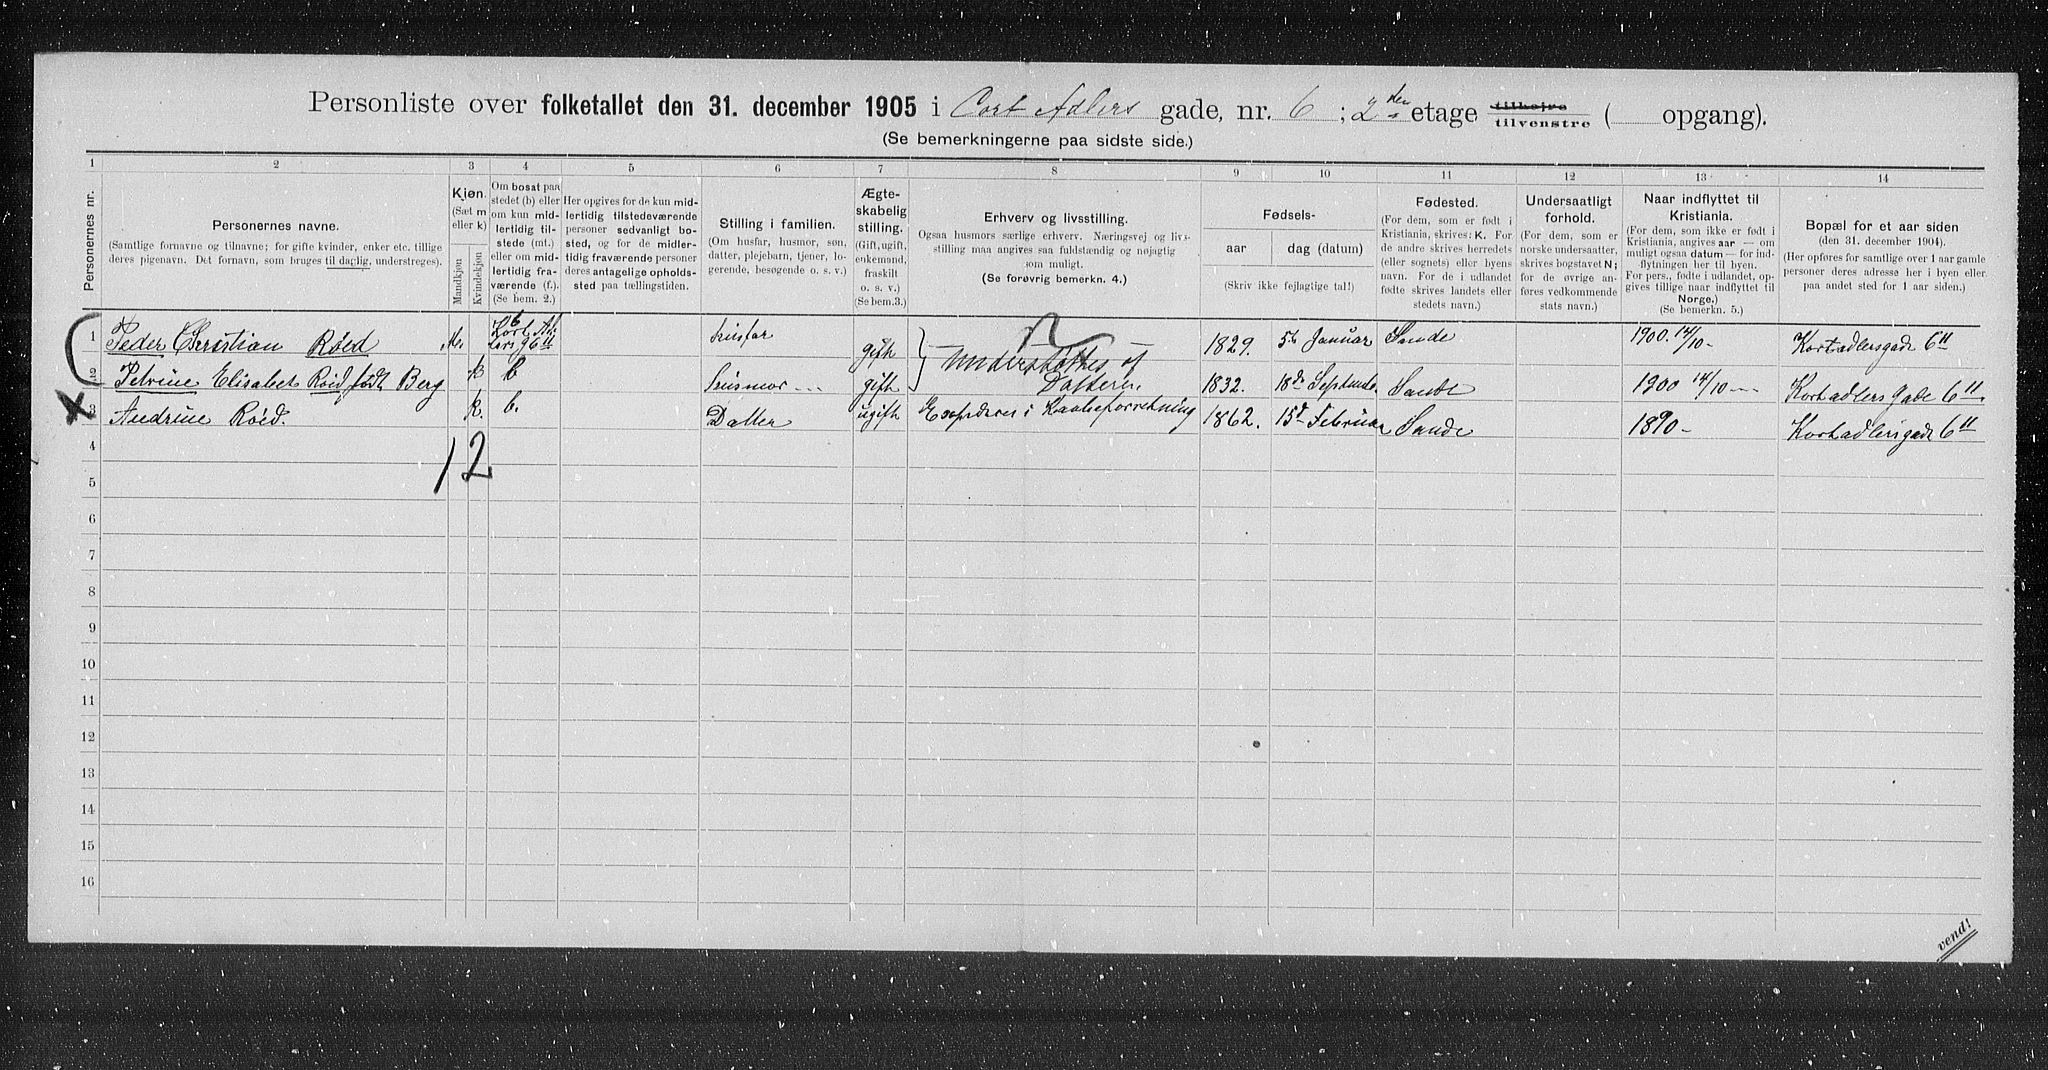 Personliste over folketallet den 31. december 1905 i Cort Adlers gade, nr. 6 ; 2den etage tilhøjre tilvenstre ( opgang).
(Se bemerkningerne paa sidste side.)
1 2 3 4 5 6 7 8 9 10 11 12 13 14
Personernes nr.
Personernes navne.
(Samtlige fornavne og tilnavne; for gifte kvinder, enker etc. tillige
deres pigenavn. Det fornavn, som bruges til daglig, understreges).
Kjøn.
(Sæt m
eller k)
Mandkjøn
Kvindekjøn
Om bosat paa
stedet (b) eller
om kun mid-
lertidig til-
stede (mt.)
eller om mid-
lertidig fra-
værende (f.).
(Se bem. 2.)
Her opgives for de kun mid-
lertidig tilstedeværende
personer sedvanlig bo-
sted, og for de midler-
tidig fraværende personer
deres antagelige opholds-
sted paa tællingstiden.
Stilling i familien.
(Om husfar, husmor, søn,
datter, plejebarn, tjener, lo-
gerende, besøgende o. s. v.)
Ægte-
skabelig
stilling.
(Gift, ugift,
enkemand,
fraskilt
o. s. v.)
(Se bem.3.)
Erhverv og livsstilling.
Ogsaa husmors særlige erhverv. Næringsvej og livs-
stilling maa angives saa fuldstændig og nøjagtig
som muligt.
(Se forøvrig bemerkn. 4.)
Fødsels-
aar
dag (datum)
(Skriv ikke fejlagtige tal!)
Fødested.
(For dem, som er født i
Kristiania, skrives: K. For
de andre skrives herredets
(eller sognets) eller byens
navn. For de i udlandet
fødte skrives landets eller
stedets navn.)
Undersaatligt
forhold.
(For dem, som er
norske undersaatter,
skrives bogstavet N;
for de øvrige an-
føres vedkommende
stats navn.)
Naar indflyttet til
Kristiania.
(For dem, som ikke er født i
Kristiania, angives aar — om
muligt ogsaa datum — for ind-
flytningen her til byen.
For pers., fødte i udlandet, op-
gives tillige naar indflyttet til
Norge.)
(Se bemerkn. 5.)
Bopæl for et aar siden
(den 31. december 1904).
(Her opføres for samtlige over 1 aar gamle
personer deres adresse her i byen eller
paa andet sted for 1 aar siden.)
1 Peder Christian Røed m. b Husfar gift Understøttes af Datteren 1829. 5te Januar Sande 1900 14/10- Kortadlersgade 6 II
2 Petrine Elisabet Røid født Berg k b Husmor gift 1832. 18de Septembe Sande 1900 14/10 Kortadlers Gade 6 II
3 Andrine Røed. k. b. Datter ugift 1862. 15de Februar Sande 1890- Kortadlersgade 6 II
4 1 2
5
6
7
8
9
10
11
12
13
14
15
16
vend!